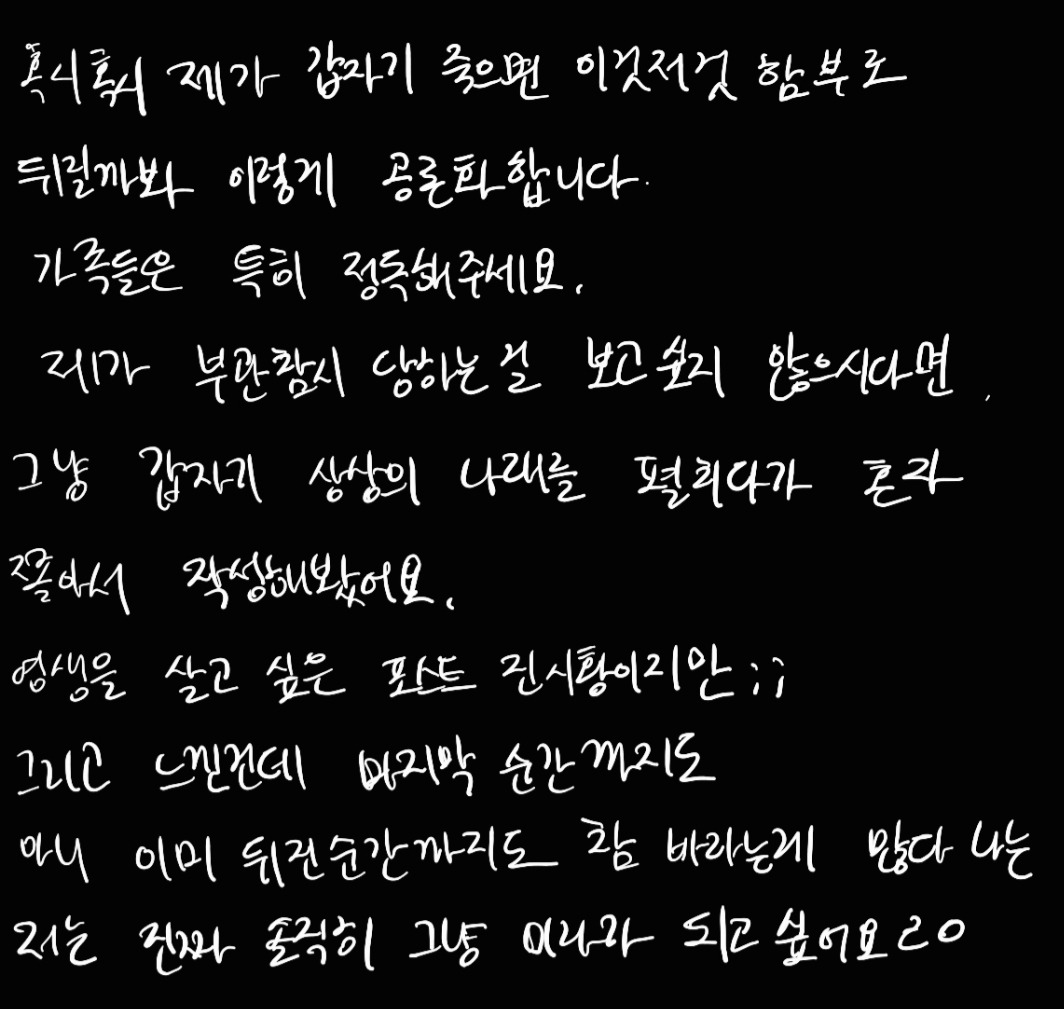 혹시혹시 제가 갑자기 죽으면 이것저것 함부로
뒤질까봐 이렇게 공론화합니다.
가족들은 특히 정독해주세요.
제가 부관참시 당하는걸 보고싶지 않으시다면,
그냥 갑자기 상상의 나래를 펼치다가 혼자
쫄아서 작성해봤어요.
영생을 살고 싶은 포스트 진시황이지만;;
그리고 느낀건데 마지막 순간까지도
아니 이미 뒤진순간까지도 참 바라는게 많다 나는
저는 진짜 솔직히 그냥 미라가 되고싶어요ㄹㅇ